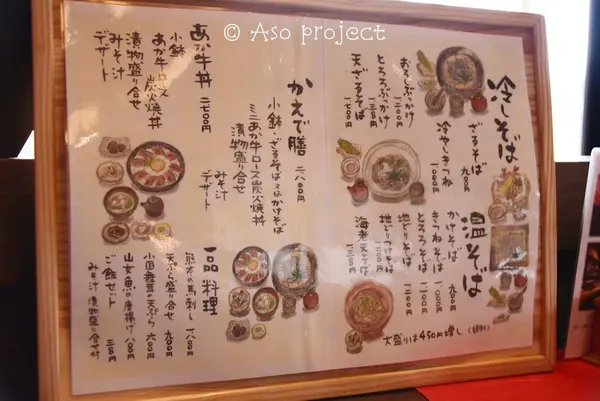 © Aso project
冷しそば
ざるそば 九〇〇円
冷やしきつね 一、〇〇〇円
おろしぶっかけ 一、二〇〇円
とろろぶっかけ 一、三〇〇円
天ざるそば 一、七〇〇円
温そば
かけそば 九〇〇円
きつねそば 一、〇〇〇円
とろろそば 一、二〇〇円
地どりそば 一、二〇〇円
地どりつけそば
海老天そば
大盛りは450円増し
かえで膳 二、八〇〇円
小鉢・ざるそば又はかけそば
ミニあか牛ロース炭火焼丼
漬物盛り合せ
みそ汁
デザート
一品料理
熊本の馬刺し 一、八〇〇円
天ぷら盛り合せ 九〇〇円
小国舞茸の天ぷら 六〇〇円
山女魚の唐揚げ 八〇〇円
ご飯セット 三五〇円
みそ汁 漬物盛り合せ付
あか牛丼 二、七〇〇円
小鉢
あか牛ロース炭火焼丼
漬物盛り合せ
みそ汁
デザート